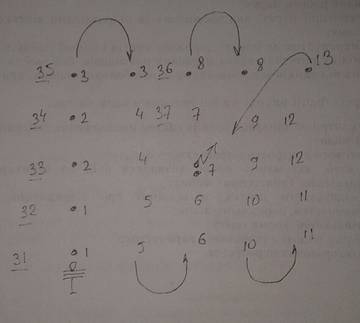 35 3 3 36 8 8 13
34 2 4 37 7 9 12
33 2 4 7 9 12
32 1 5 6 10 11
31 1 5 6 10 11